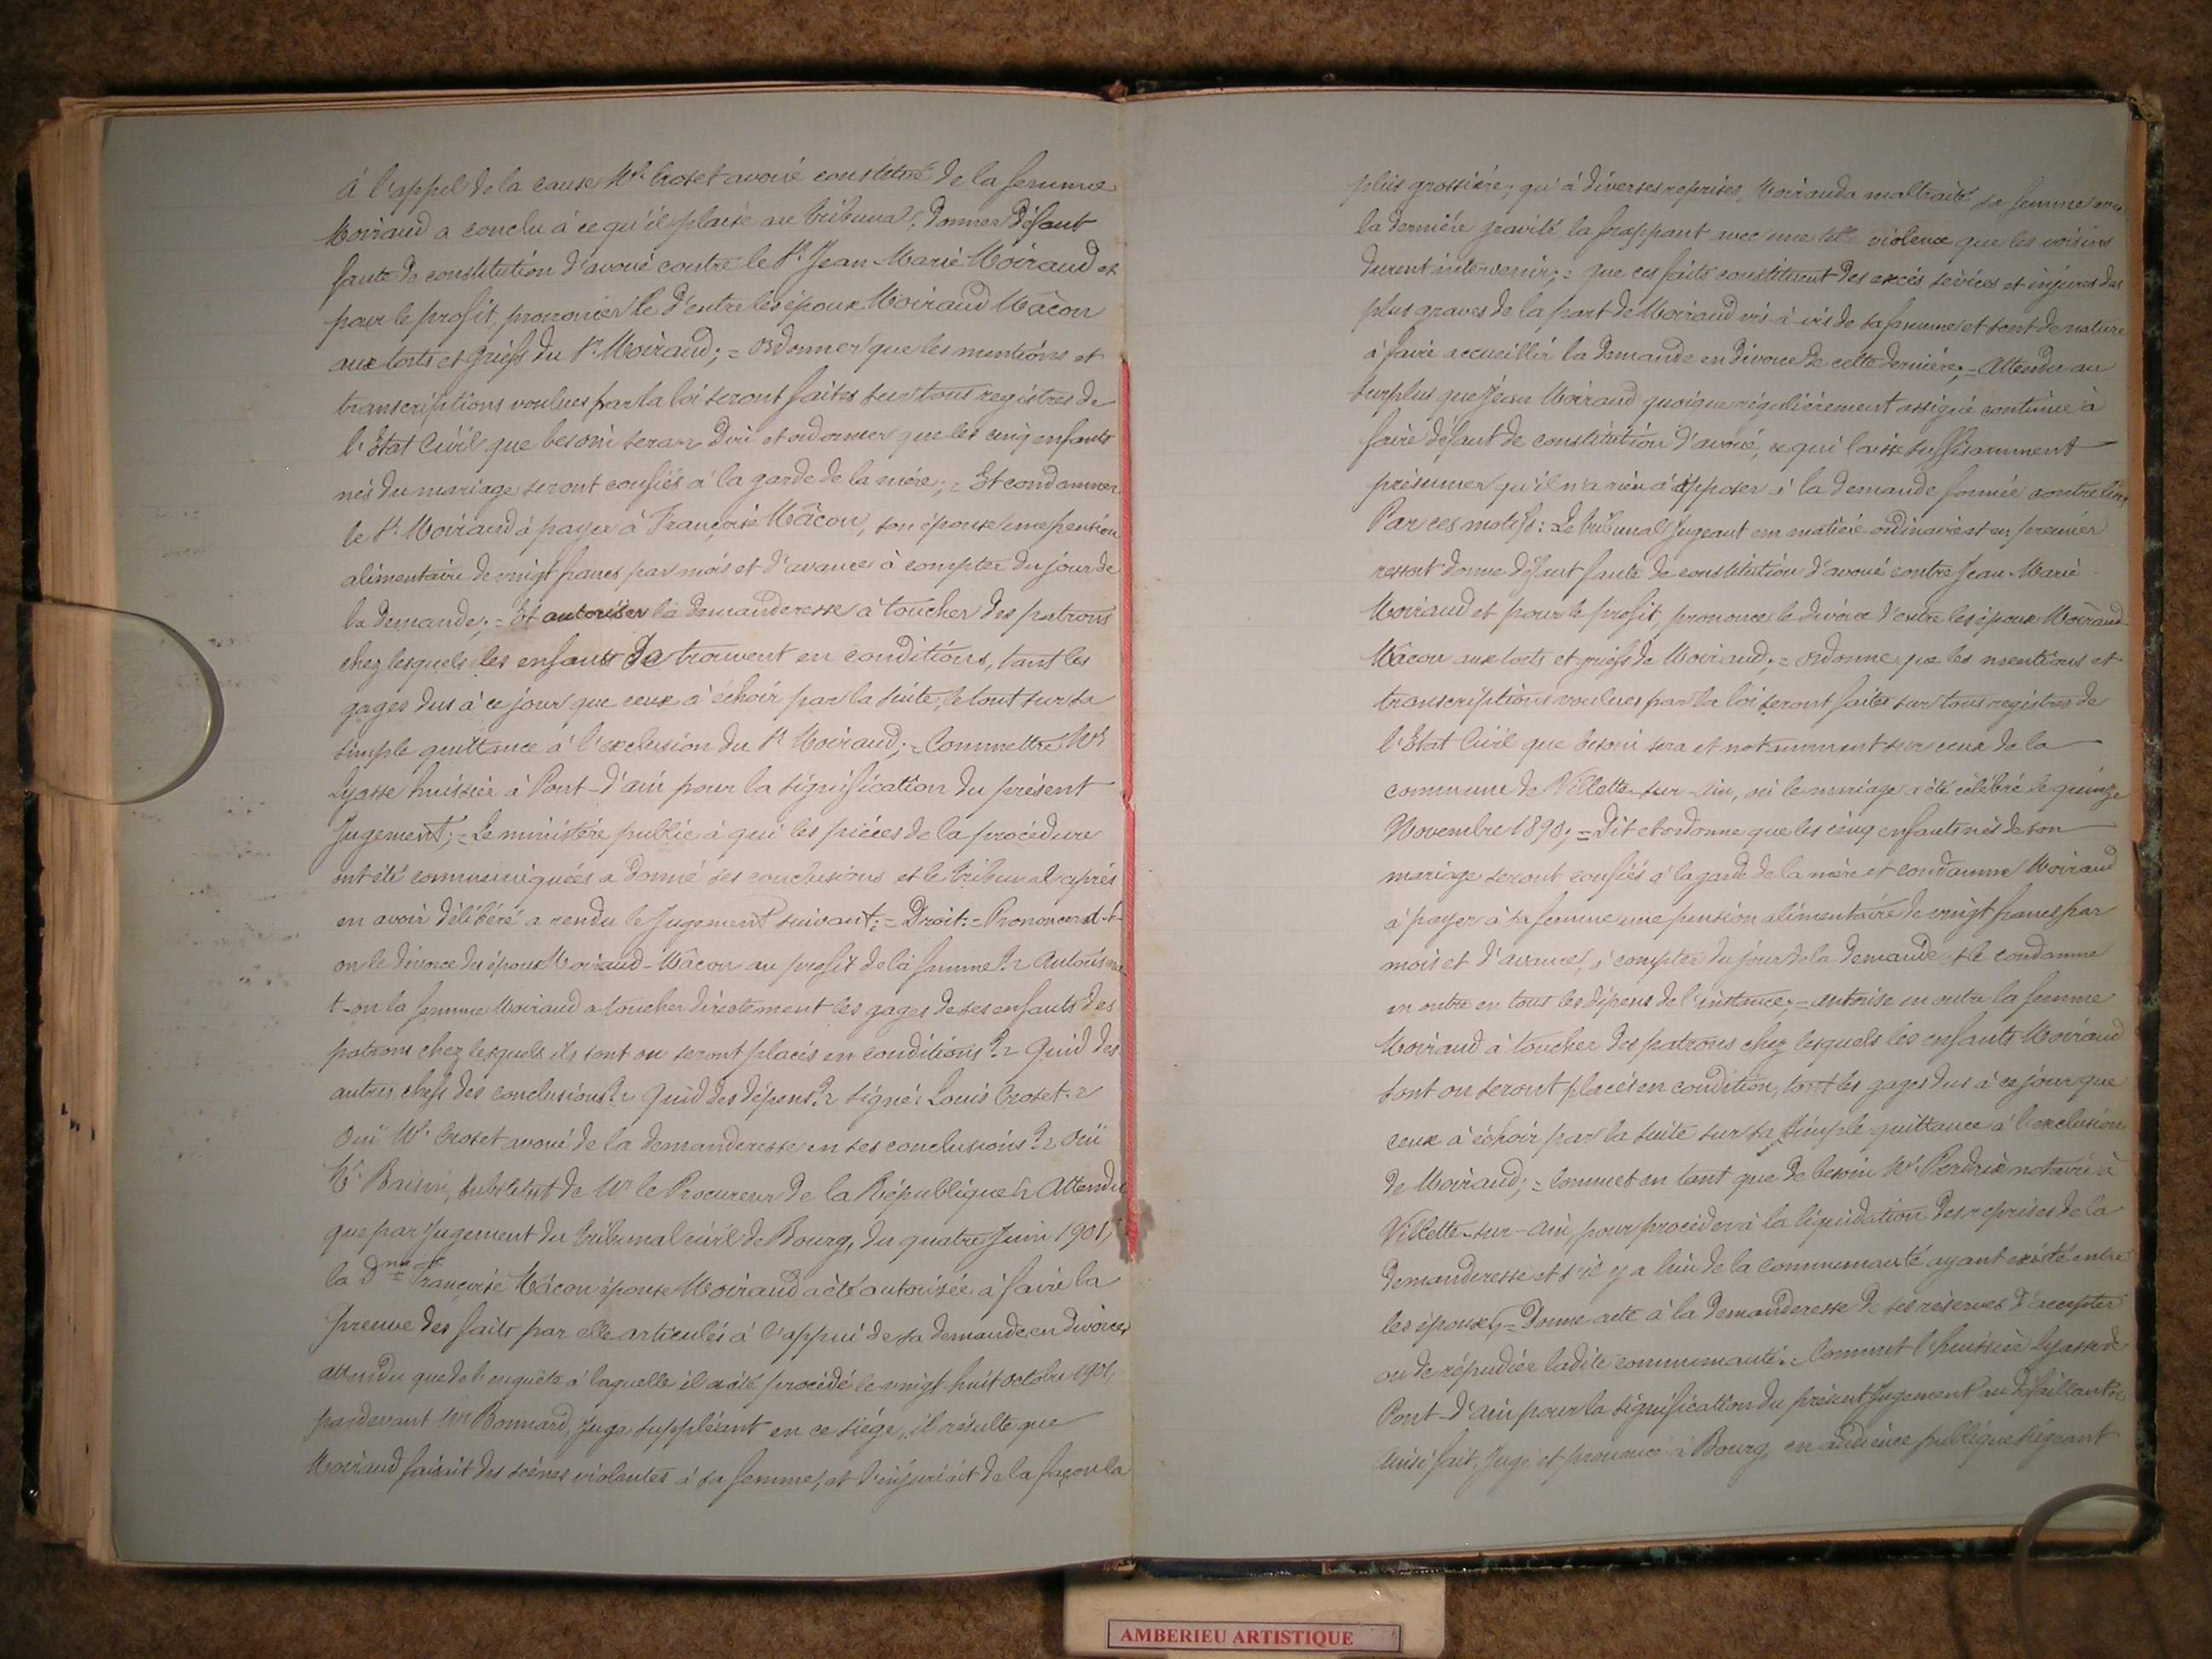 à l'appel de la cause Me Croset avoué constitué de la femme
Moiraud a conclu à ce qu'il plaise au tribunal; Donner Défaut
faute de constitution d'avoué contre le Sr Jean-Marie Moiraud et
pour le profit, prononcer le d'entre les époux Moiraud Mâcon
aux torts et griefs du Sr Moiraud; = ordonner que les mentions et
transcriptions voulues par la loi seront faites sur tous registres de
l'Etat Civil que besoin sera Dire et ordonner que les cinq enfants
nés du mariage seront confiés à la garde de la mère; = Et condamner
le Sr Moiraud à payer à Françoise Mâcon, son épouse une pension
alimentaire de vingt francs par mois et d'avance à compter du jour de
la demande; = Et autoriser la demanderesse à toucher des patrons
chez lesquels les enfants se trouvent en conditions, tant les
gages dus à ce jour que ceux à échoir par la suite, le tout sur sa
simple quittance à l'exclusion du Sr Moiraud; = Commettre Me
Lyasse huissier à Pont-d'ain pour la signification du présent
Jugement; = Le ministère public à qui les pièces de la procédure
ont été communiquées a donné ses conclusions et le tribunal après
en avoir délibéré a rendu le Jugement suivant: = Droit: = Prononcera-t-
on le divorce des époux Moiraud-Mâcon au profit de la femme? Autorisera-
t-on la femme Moiraud a toucher directement les gages de ses enfants des
patrons chez lesquels ils sont ou seront placés en conditions? Quid des
autres chefs des conclusions? Quid des dépens? signé: Louis Croset.
Ouï Me Croset avoué de la demanderesse en ses conclusions? Ouï
Mr Baisin, substitut de Mr le Procureur de la République Attendu
que par Jugement du tribunal civil de Bourg, du quatre Juin 1901,
la Dme Françoise Mâcon épouse Moiraud a été autorisée à faire la
preuve des faits par elle articulés à l'appui de sa demande en divorce,
attendu que de l'enquête à laquelle il a été procédé le vingt huit octobre 1901,
pardevant Mr Bonnard, Juge suppléant en ce siège, il résulte que
Moiraud faisait des scènes violentes à sa femme, et l'injuriait de la façon la
plus grossière; qu'à diverses reprises, Moiraud a maltraité sa femme avec
la dernière gravité, la frappant avec une telle violence que les voisins
durent intervenir; = que ces faits constituent des excès sévices et injures des
plus graves de la part de Moiraud vis à vis de sa femme et sont de nature
à faire accueillir la demande en divorce de cette dernière; = Attendu au
surplus que Jean Moiraud quoique régulièrement assigné continue à
faire défaut de constitution d'avoué, ce qui laisse suffisamment
présumer qu'il n'a rien à opposer à la demande formée contre lui;
Par ces motifs: Le tribunal Jugeant en matière ordinaire et en premier
ressort donne défaut faute de constitution d'avoué contre Jean-Marie
Moiraud et pour le profit, prononce le divorce d'entre les époux Moiraud-
Mâcon aux torts et griefs de Moiraud; = ordonne que les mentions et
transcriptions voulues par la loi seront faites sur tous registres de
l'Etat Civil que besoin sera et notamment sur ceux de la
commune de Villette-sur-Ain, où le mariage a été célébré le quinze
Novembre 1890; = Dit et ordonne que les cinq enfants nés de son
mariage seront confiés à la garde de la mère et condamne Moiraud
à payer à sa femme une pension alimentaire de vingt francs par
mois et d'avance, à compter du jour de la demande et le condamne
en outre en tous les dépens de l'instance; = autorise en outre la femme
Moiraud à toucher des patrons chez lesquels les enfants Moiraud
sont ou seront placés en condition, tant les gages dus à ce jour que
ceux à échoir par la suite sur sa simple quittance à l'exclusion
de Moiraud; = Commet en tant que de besoin Me Perdrix notaire à
Villette-sur-Ain, pour procéder à la liquidation des reprises de la
demanderesse et s'il y a lieu de la communauté ayant existé entre
les époux; = Donne acte à la demanderesse de ses réserves d'accepter
ou de répudier ladite communauté. = Commet l'huissier Lyasse de
Pont-d'Ain pour la signification du présent Jugement au défaillant
Ainsi fait, Jugé et prononcé à Bourg, en audience publique siégeant
AMBERIEU ARTISTIQUE